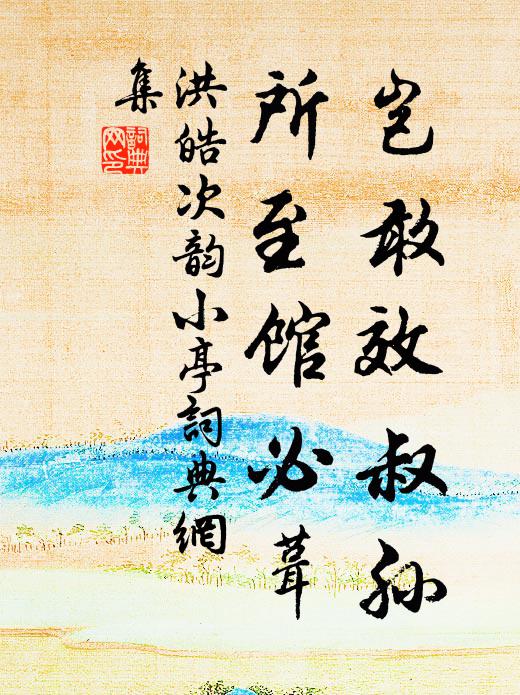 岂敢效叔孙
所至馆必葺
洪皓次韵小亭词典网
集
词典网印